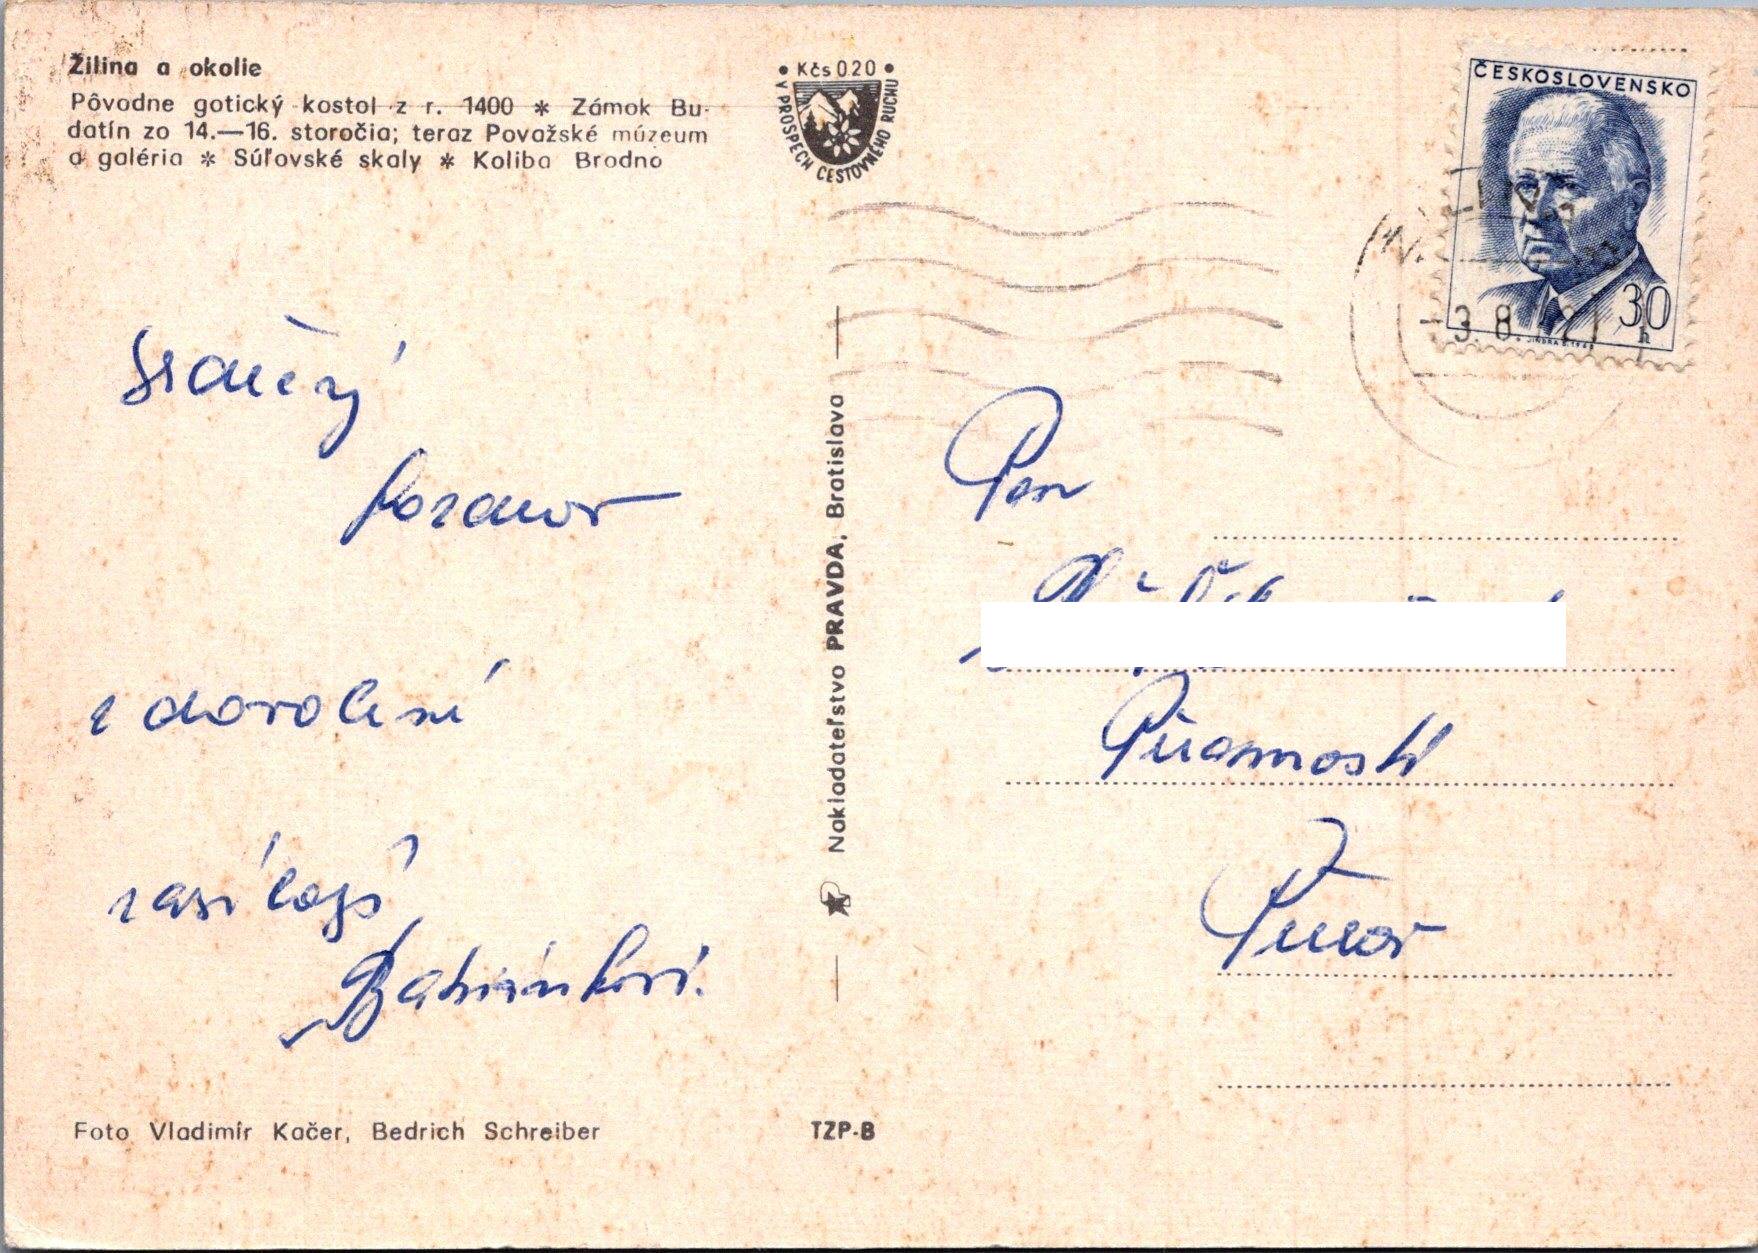 Žilina a okolie
Pôvodne gotický kostol z r. 1400 * Zámok Bu-
datín zo 14.—16. storočia; teraz Považské múzeum
a galéria * Súľovské skaly * Koliba Brodno
• Kčs 020 •
V PROSPECH CESTOVNÉHO RUCHU
ČESKOSLOVENSKO
30 h
J. JINDRA D. 1968
-3.8.
Srdečný
pozdrav
z dovolené
zasílají
Nakladateľstvo PRAVDA, Bratislava
Pan
Foto Vladimír Kačer, Bedrich Schreiber
TZP-B